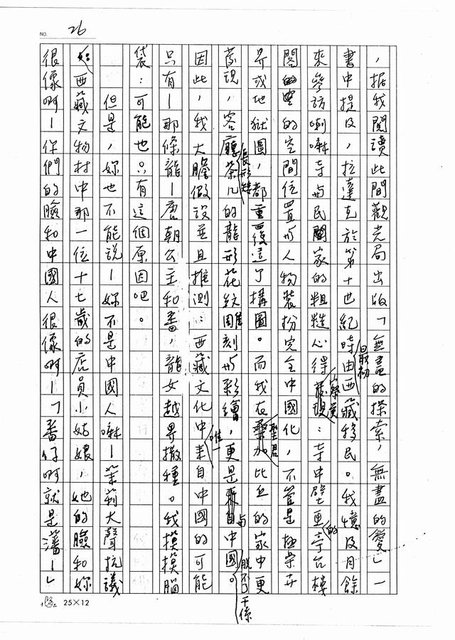 NO. 26
，據我閱讀此間觀光局出版「無盡的探索，無盡的愛」一
書中提及，拉達克於第十世紀時最初由西藏移民。我憶及月餘
來參訪喇嘛寺與民家的粗糙心得察覺：寺中壁畫的亭台樓
閣的空間位置與人物裝扮完全中國化，不管是極樂世
界或地獄圖，都重覆這了構圖。而我在加比丘的家中更
發現，客廳長形矮茶几的龍形花紋雕刻與彩繪，更是與中國脫不了干係。
因此，我大膽假設並且推測：西藏文化中唯一來自中國的可能
只有—那條龍—唐朝公主和畫，龍女越界撒種。我摸摸腦
袋：可能也只有這個原因吧。
但是，妳也不能說—妳不是中國人嘛！—茉莉大聲抗議
如西藏文物村中那一位十七歲的店員小姑娘，她的臉和妳
很像啊！—你們的臉和中國人很像啊！—「番仔啊就是藩！」
25×12